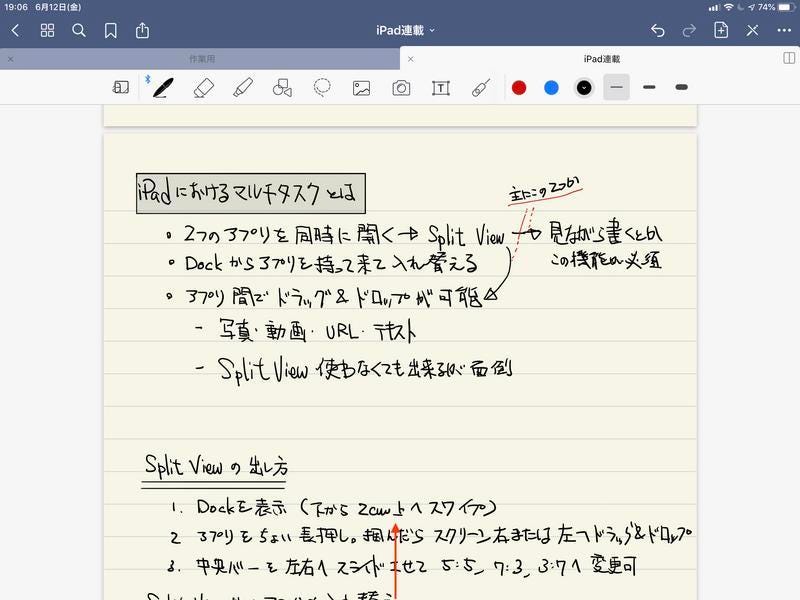 19:06 6月12日(金)
74%
iPad連載
作業用
iPad連載
iPadにおけるマルチタスクとは
主にこの2つが
• 2つのアプリを同時に開く→Split View → 見ながら書くとか
この機能が必須
• Dockからアプリを持って来て入れ替える
• アプリ間でドラッグ&ドロップが可能
- 写真・動画・URL・テキスト
- Split View 使わなくても出来るが面倒
Split Viewの出し方
1. Dockを表示(下から2cm上へスワイプ)
2 アプリをちょい長押し。掴んだらスクリーン右または左へドラッグ&ドロップ
3. 中央バーを左右へスライドさせて 5:5, 7:3, 3:7へ変更可